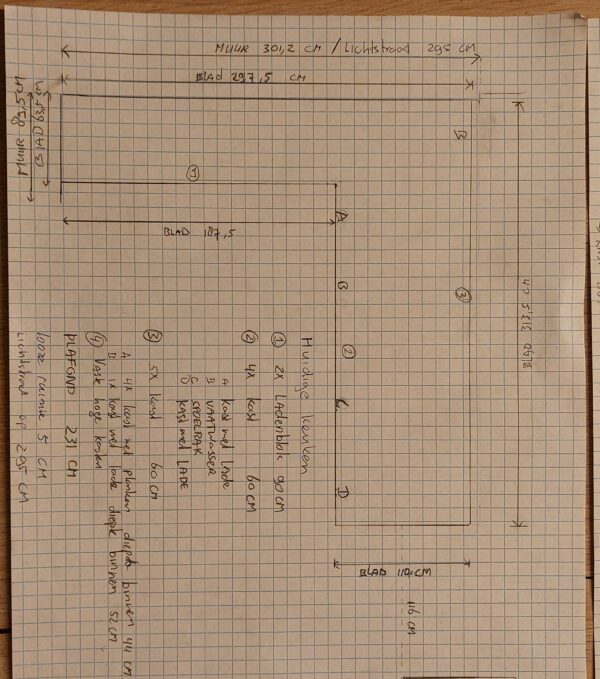 MUUR 301,2 CM / Lichtstraat 295 CM
BLAD 297,5 CM
MUUR 83,5 CM
BLAD 63,5 CM
①
BLAD 187,5
A
B
C
D
②
B
③
BLAD 313,5 CM
BLAD 110 CM
116 CM
Huidige keuken
① 2x Ladenblok 90 CM
② 4x kast 60 CM
A kast met Lade
B VAATWASSER
C SPOELBAK
D KAST met LADE
③ 5x kast 60 CM
A 4x kast met planken diepte binnen 44 CM
B 1x kast met lade diepte binnen 52 CM
④ Vaste hoge kasten
PLAFOND 231 CM
loose ruimte 5 CM
Lichtstraat op 295 CM